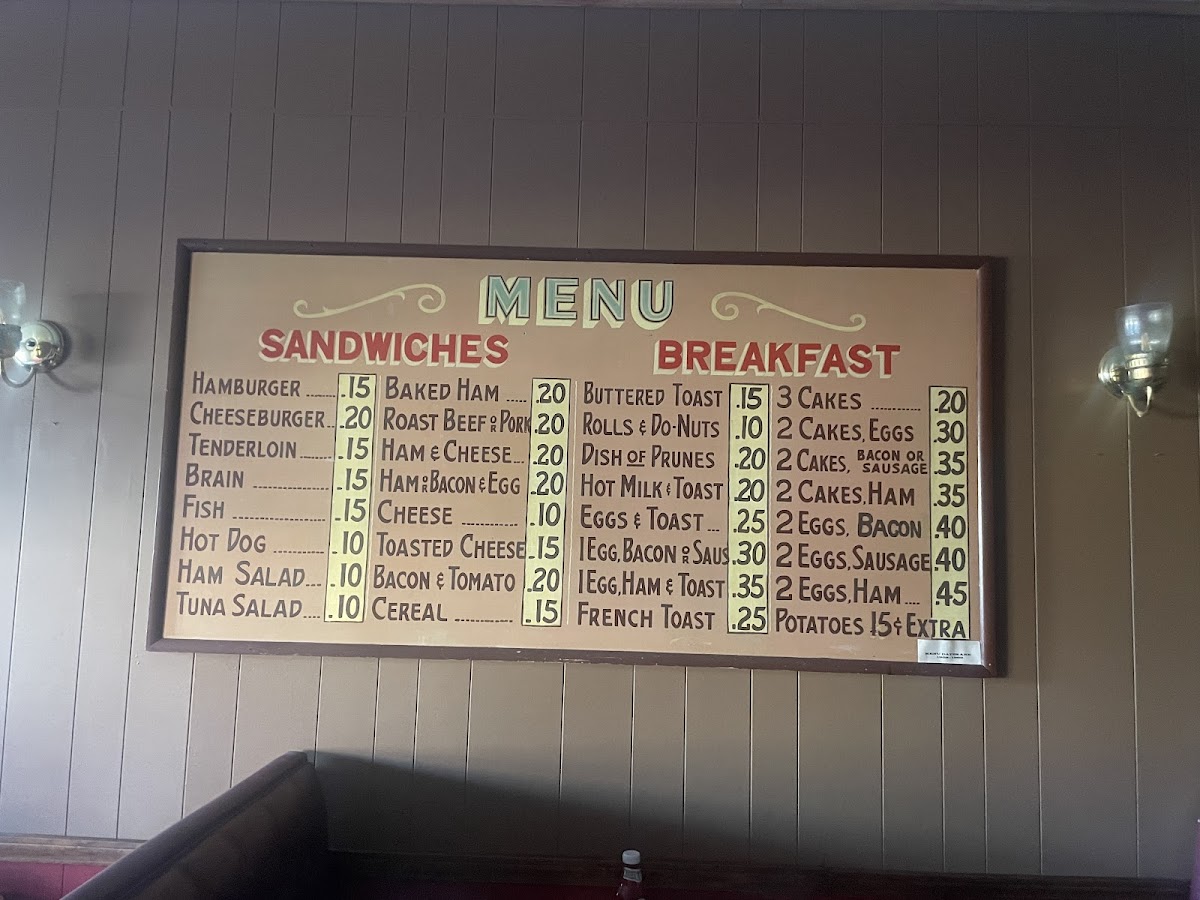 MENU
SANDWICHES
HAMBURGER ........ .15
CHEESEBURGER .. .20
TENDERLOIN ....... .15
BRAIN ............... .15
FISH .................. .15
HOT DOG ............ .10
HAM SALAD .... .10
TUNA SALAD ..... .10
BAKED HAM ..... .20
ROAST BEEF OR PORK .20
HAM & CHEESE ... .20
HAM OR BACON & EGG .20
CHEESE ............ .10
TOASTED CHEESE .15
BACON & TOMATO .20
CEREAL ............ .15
BREAKFAST
BUTTERED TOAST .15
ROLLS & DO-NUTS .10
DISH OF PRUNES .20
HOT MILK & TOAST .20
EGGS & TOAST ... .25
1 EGG, BACON OR SAUS .30
1 EGG, HAM & TOAST .35
FRENCH TOAST .25
3 CAKES ............ .20
2 CAKES, EGGS .30
2 CAKES, BACON OR SAUSAGE .35
2 CAKES, HAM .35
2 EGGS, BACON .40
2 EGGS, SAUSAGE .40
2 EGGS, HAM .... .45
POTATOES 15¢ EXTRA